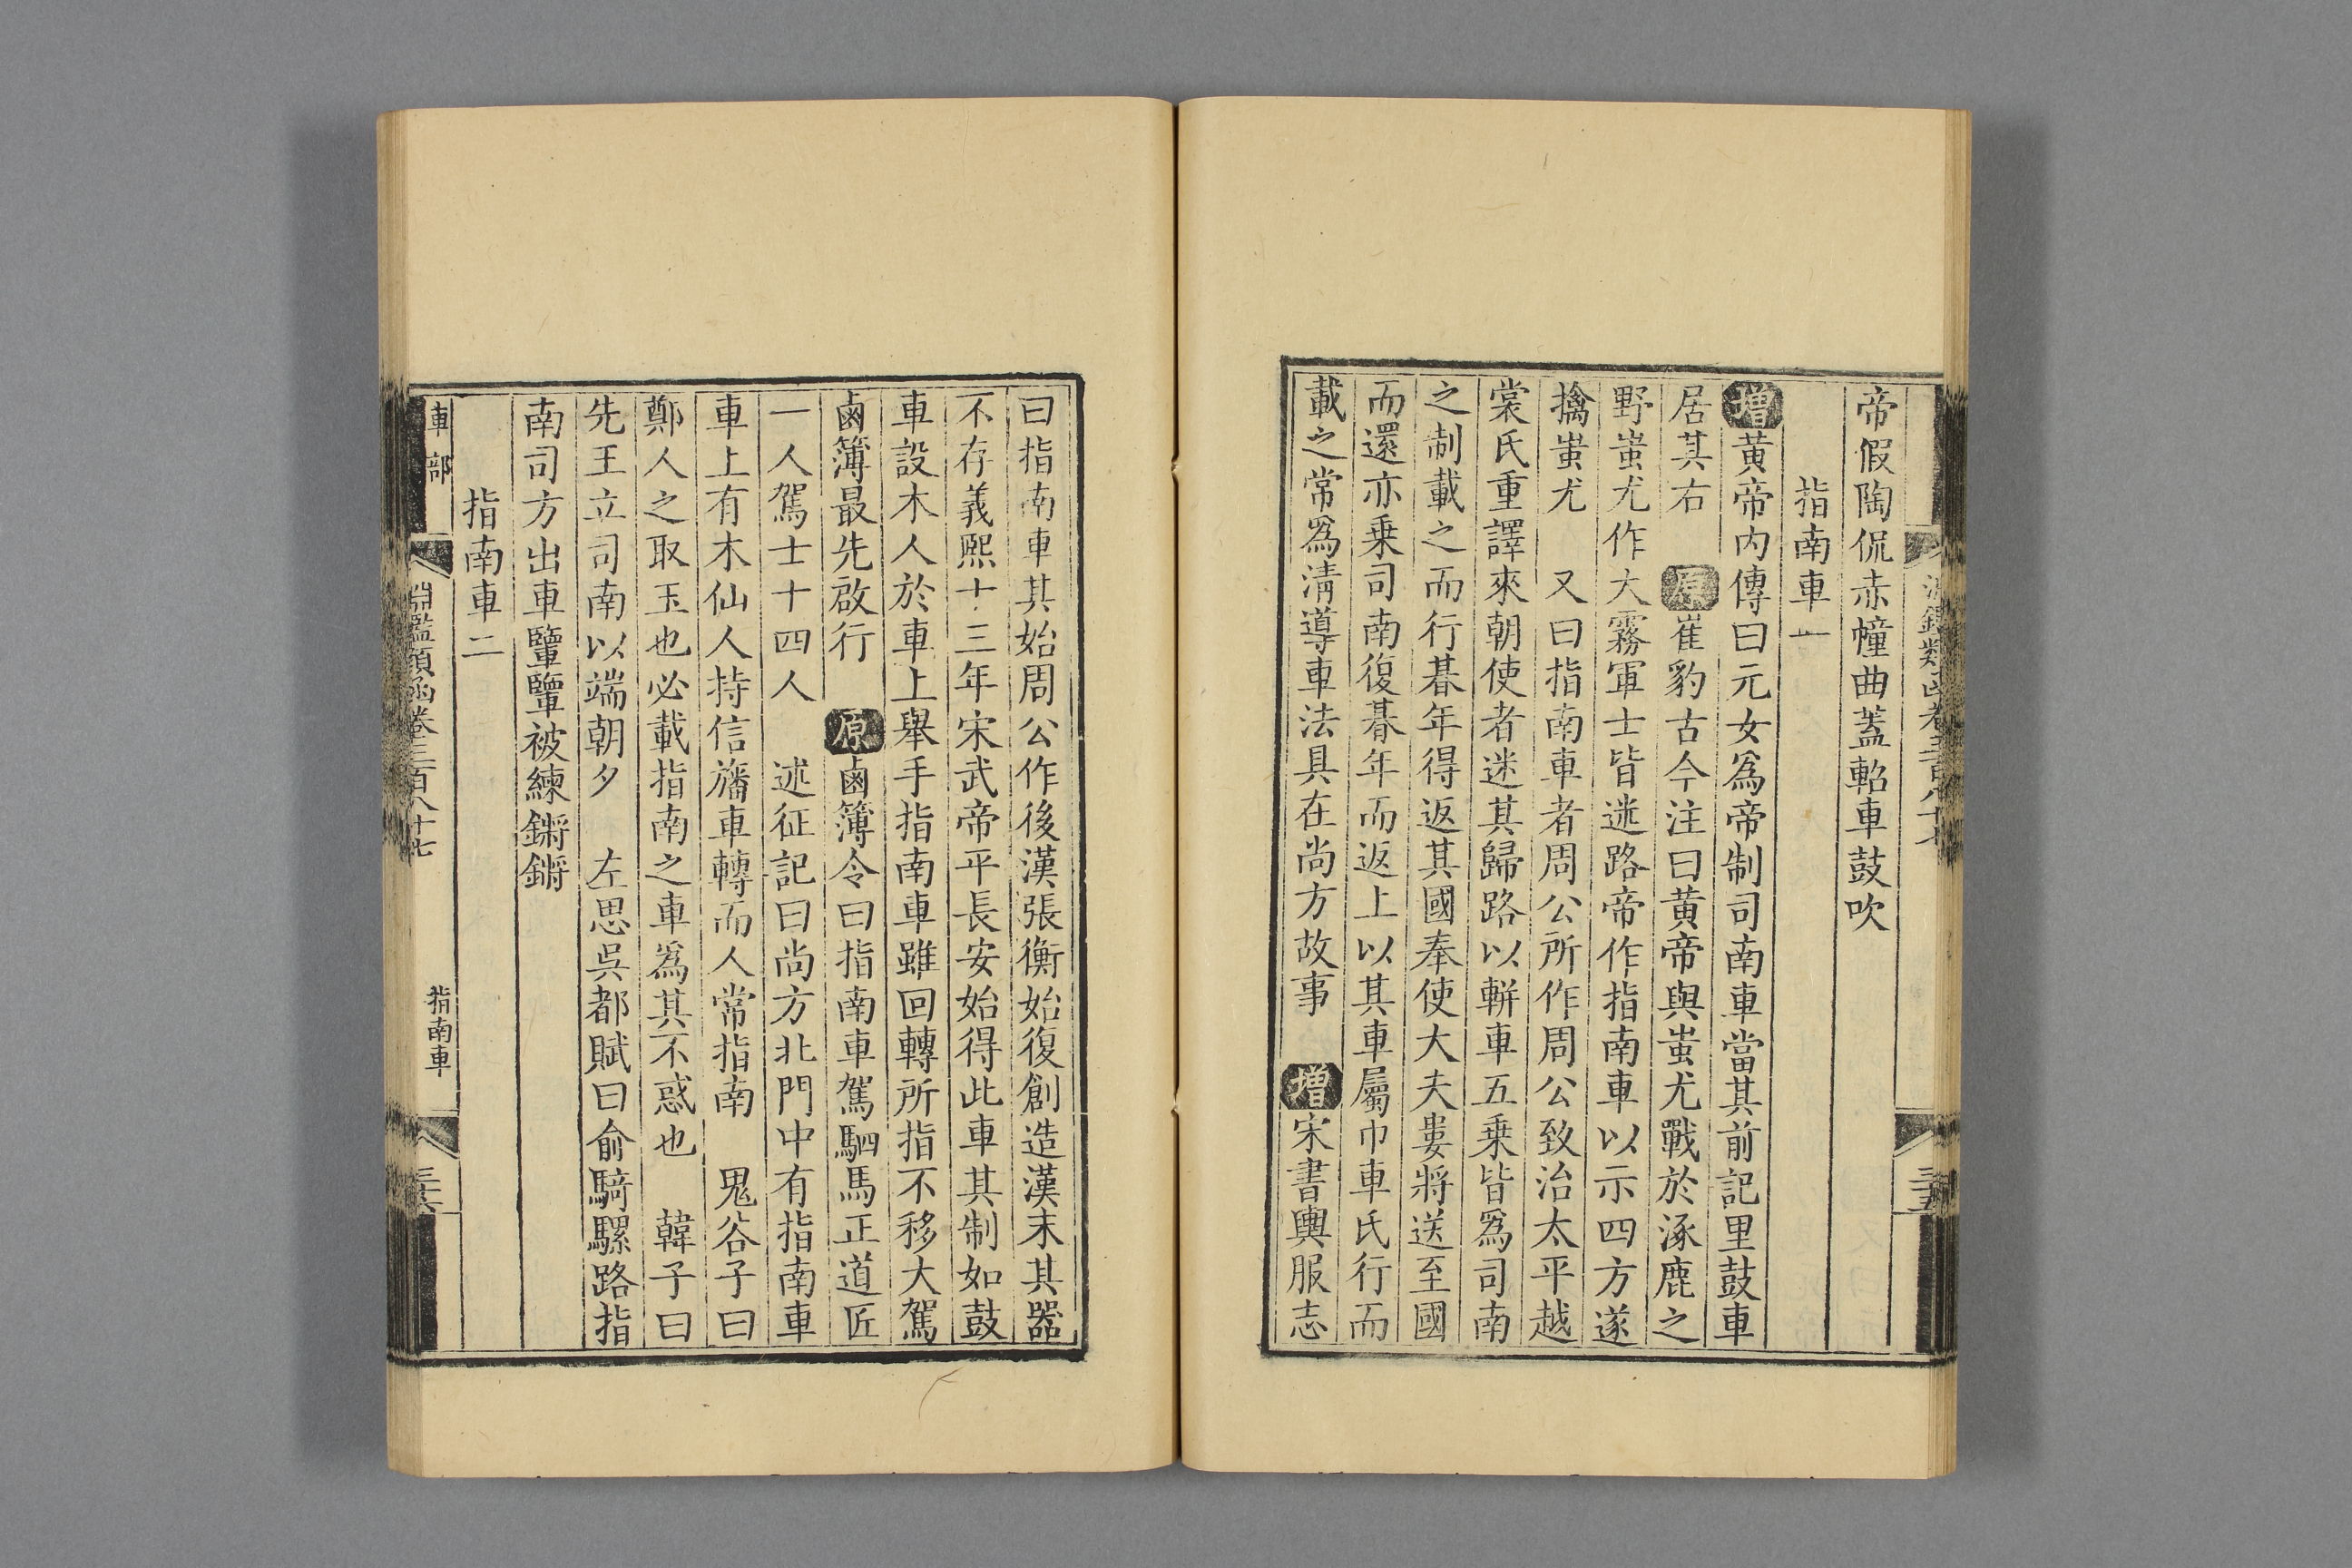 帝假陶侃赤幢曲蓋軺車鼓吹
指南車一
增黄帝内傳曰元女爲帝制司南車當其前記里鼓車
居其右 原崔豹古今注曰黄帝與蚩尤戰於涿鹿之
野蚩尤作大霧軍士皆迷路帝作指南車以示四方遂
擒蚩尤 又曰指南車者周公所作周公致治太平越
裳氏重譯來朝使者迷其歸路以軿車五乗皆爲司南
之制載之而行朞年得返其國奉使大夫婁將送至國
而還亦乗司南復朞年而返上以其車屬巾車氏行而
載之常爲清導車法具在尚方故事 增宋書輿服志
曰指南車其始周公作後漢張衡始復創造漢末其器
不存義熙十三年宋武帝平長安始得此車其制如鼓
車設木人於車上舉手指南車雖回轉所指不移大駕
鹵簿最先啟行 原鹵簿令曰指南車駕駟馬正道匠
一人駕士十四人 述征記曰尚方北門中有指南車
車上有木仙人持信旛車轉而人常指南 鬼谷子曰
鄭人之取玉也必載指南之車爲其不惑也 韓子曰
先王立司南以端朝夕 左思吳都賦曰俞騎騾路指
南司方出車轞轞被練鏘鏘
指南車二
車部
淵鑑類函卷三百八十七
指南車
三十六